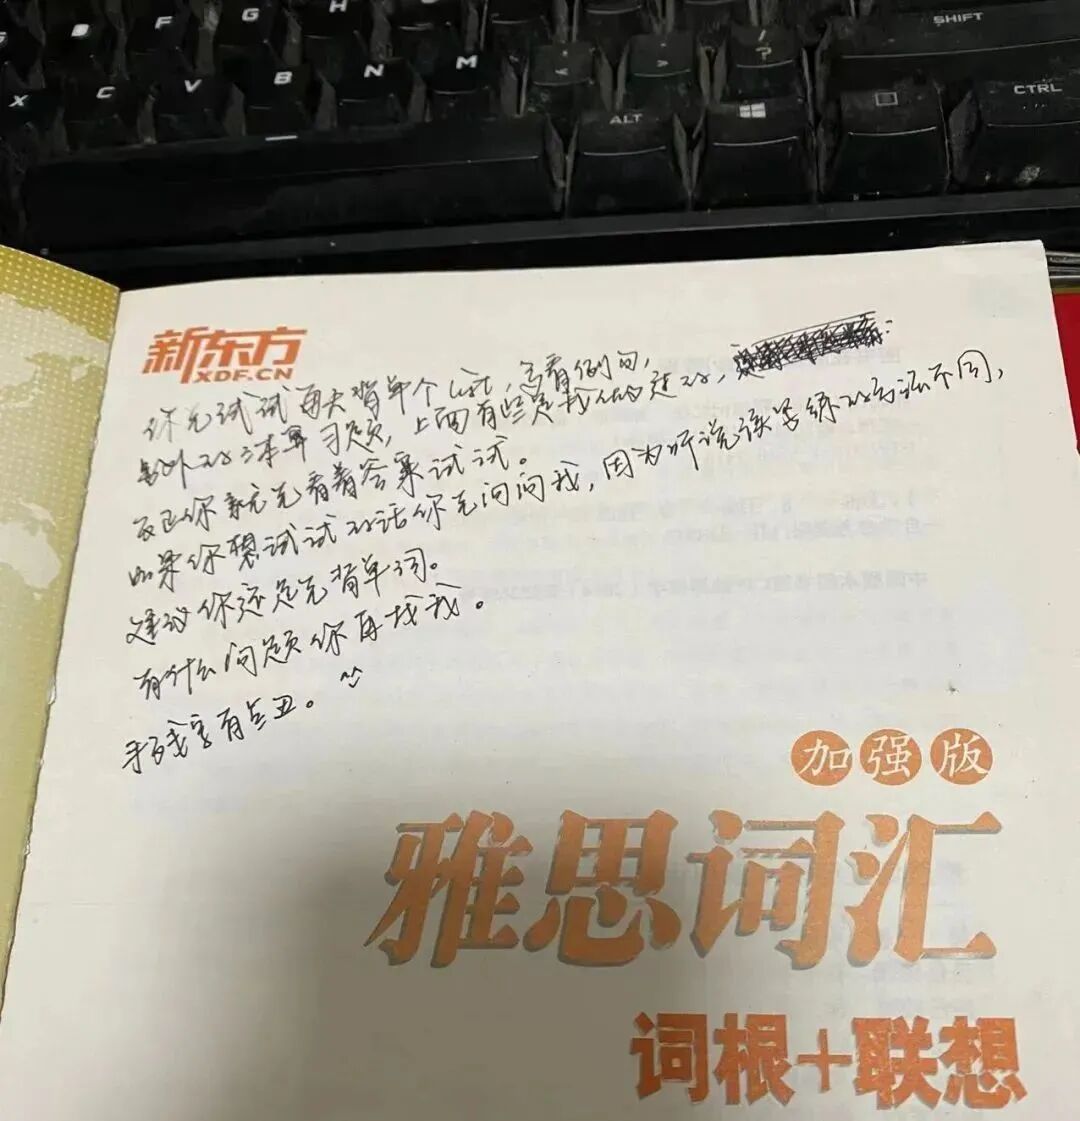 X C V B N M
G H
< > ?
/
SHIFT
ALT
CTRL
新东方
XDF.CN
你先试试每天背单个list，多看例句，
另外的三本算习题，上面有些是我做过的，
反正你就先看着答案试试。
如果你想试试的话你先问问我，因为听说读写练的方法不同，
建议你还是先背单词。
有什么问题你再找我。
手残字有点丑。^^
加强版
雅思词汇
词根+联想